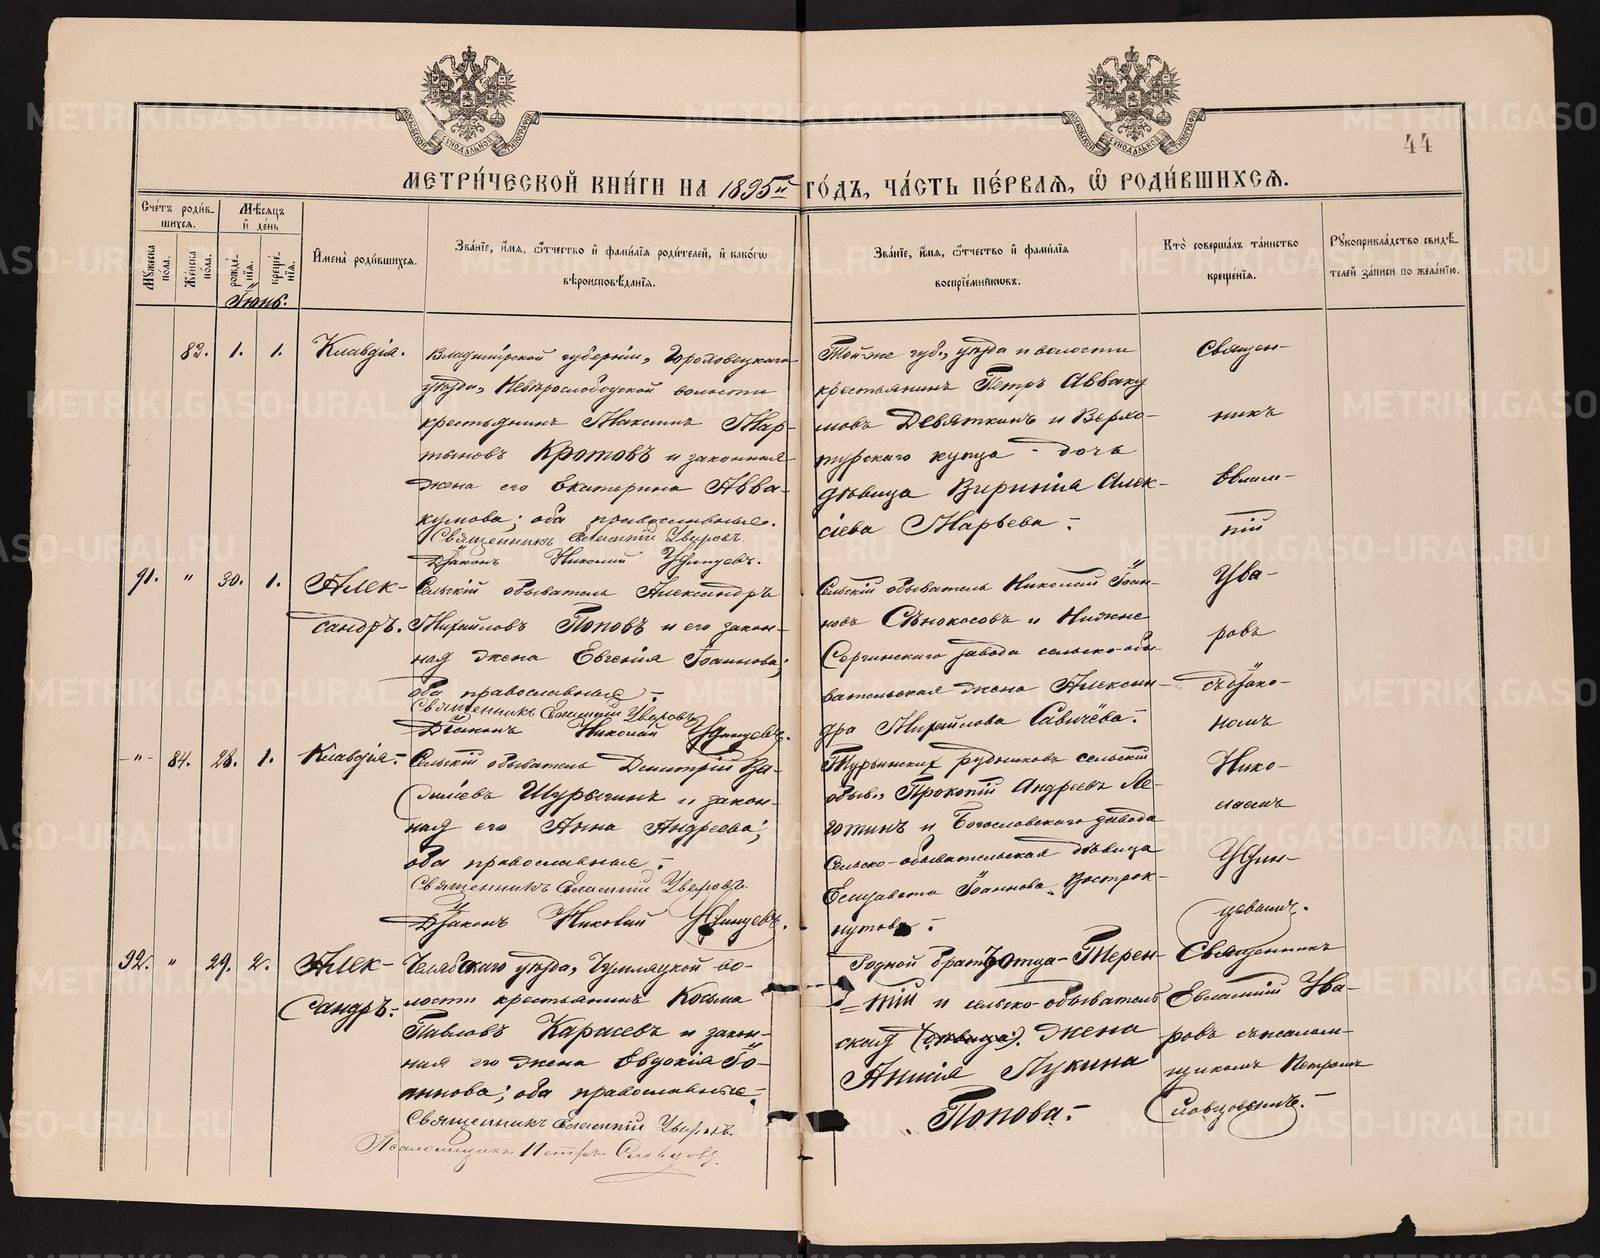 44
МЕТРИ́ЧЕСКОЙ КНИ́ГИ НА 1895й ГО́ДЪ, ЧА́СТЬ ПЕ́РВАЯ, Ѽ РОДИ́ВШИХСЯ.
Счётъ роди́вшихся.
Мѣ́сяцъ и де́нь
Му́жеска по́ла.
Же́нска по́ла.
рожде́нія.
креще́нія.
Имена̀ роди́вшихся.
Зва́ніе, и́мя, ѻ́тчество и фами́лія роди́телей, и како́гѡ
вѣроисповѣ́данія.
Зва́ніе, и́мя, ѻ́тчество и фами́лія
воспріе́мникѡвъ.
Кто̀ соверша́лъ та́инство
креще́нія.
Рꙋкоприкла́дство свидѣ́
телей за́писи по жела́нію.
Іюнь.
83. 1. 1. Клавдія.
Владимірской губерніи, Гороховецкаго
уѣзда, Невѣрослободской волости
крестьянинъ Максимъ Мар-
тыновъ Кротовъ и законная
жена его Екатерина Авва-
кумова; оба православные.
Священникъ Евлампій Уваровъ.
Діаконъ Николай Удинцевъ.
Той-же губ., уѣзда и волости
крестьянинъ Петръ Авваку
мовъ Девяткинъ и Верхо-
турскаго купца - дочь
дѣвица Виринія Алек-
сіева Марьева.-
Священ-
никъ
Евлам-
пій
Ува-
ровъ
съ діако-
номъ
Нико-
лаемъ
Удин-
цевымъ.
91. " 30. 1. Алек-
сандръ.
Сельскій обыватель Александръ
Михайловъ Поповъ и его закон-
ная жена Евгенія Іоаннова;
оба православные.-
Священникъ Евлампій Уваровъ
Діаконъ Николай Удинцевъ.
Сельскій обыватель Николай Іоан-
новъ Сѣнокосовъ и Нижне
Сергинскаго завода сельско-обы-
вательская жена Алексан-
дра Михайлова Савичева.-
-"- 84. 28. 1. Клавдія.-
Сельскій обыватель Димитрій Ва-
силіевъ Шурыгинъ и закон-
ная его Анна Андреева;
оба православные.-
Священникъ Евлампій Уваровъ.
Діаконъ Николай Удинцевъ.
Турьинскихъ рудниковъ сельскій
обыв., Прокопій Андреевъ Ле-
готинъ и Богословскаго завода
Сельско-обывательская дѣвица
Елизавета Іоаннова Вострок-
нутова.-
92. " 29. 2. Алек-
сандръ.-
Челябскаго уѣзда, Чумляцкой во-
лости крестьянинъ Косьма
Павловъ Карасевъ и закон-
ная его жена Евдокія Іо-
аннова; оба православные.-
Священникъ Евлампій Уваровъ.
Псаломщикъ Петръ Словцовъ.
Родной братъ отца - Терен-
тій и сельско-обыватель
ская (дѣвица). жена
Анисія Лукина
Попова.-
Священникъ
Евлампій Ува-
ровъ съ псалом-
щикомъ Петромъ
Словцовымъ.-
METRIKI.GASO-URAL.RU